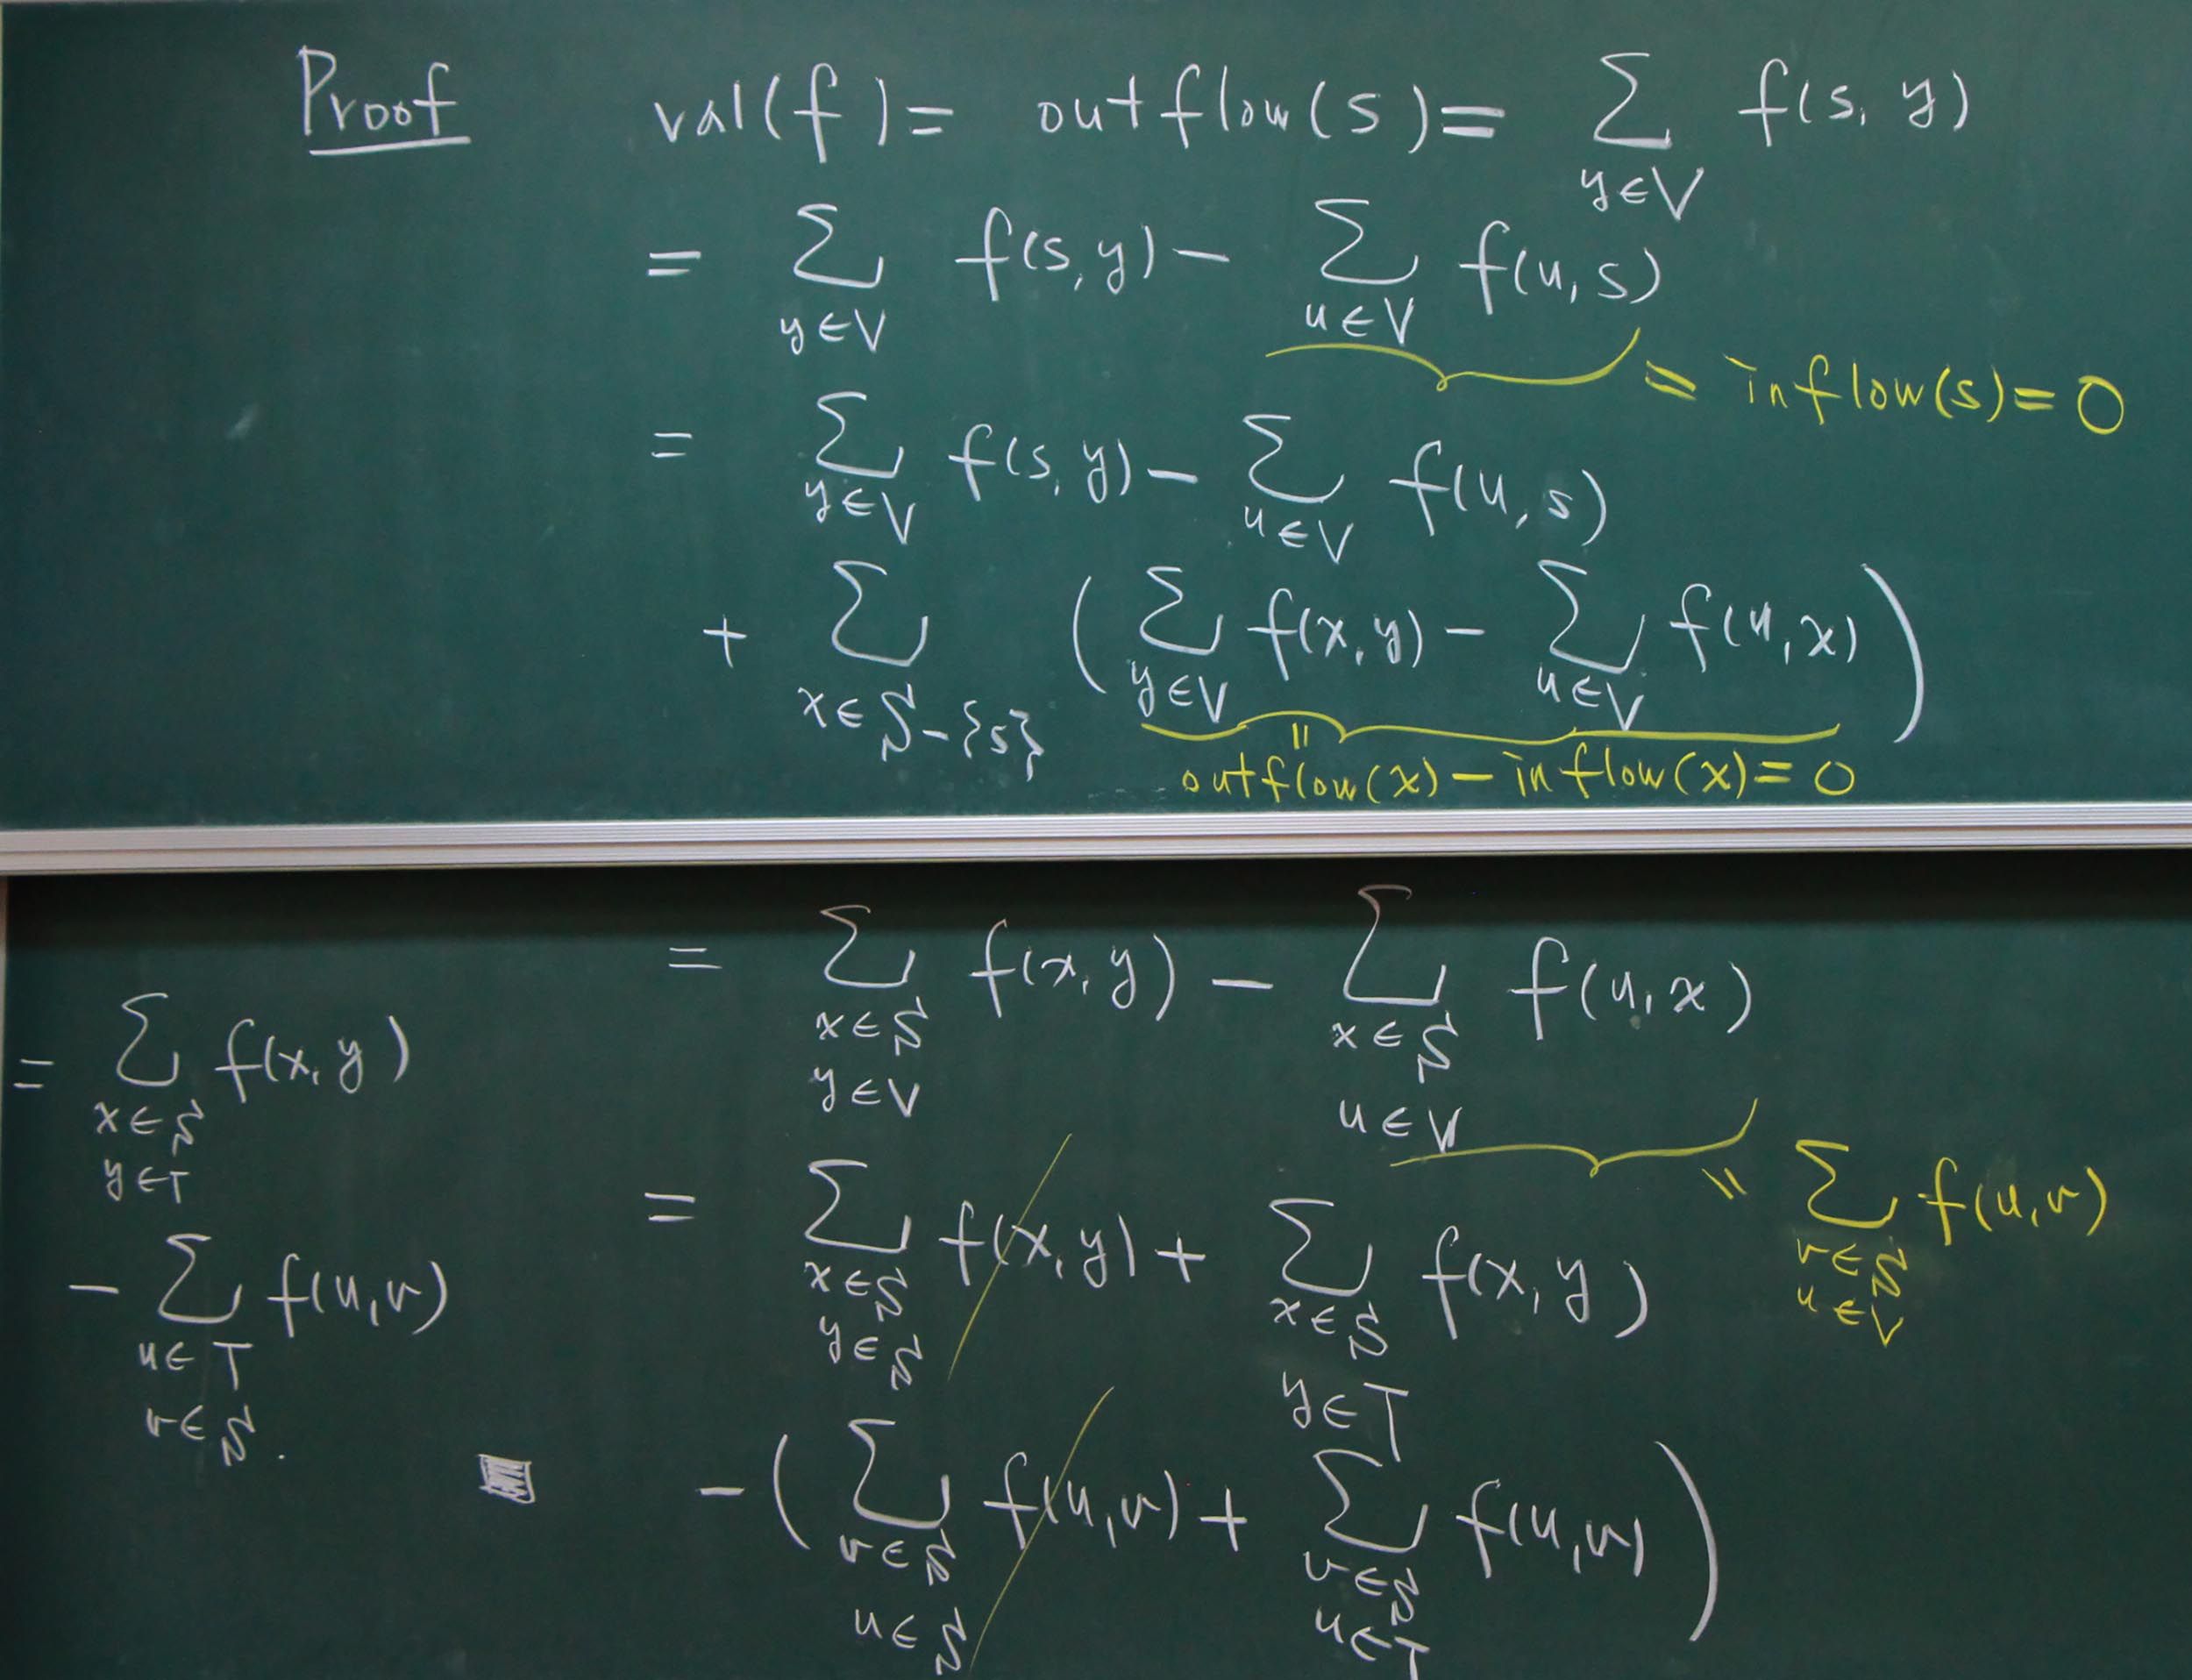 Proof val(f) = outflow(s) = ∑_{y∈V} f(s, y)
= ∑_{y∈V} f(s, y) − ∑_{u∈V} f(u, s)
= inflow(s) = 0
= ∑_{y∈V} f(s, y) − ∑_{u∈V} f(u, s)
+ ∑_{x∈S−{s}} ( ∑_{y∈V} f(x, y) − ∑_{u∈V} f(u, x) )
= outflow(x) − inflow(x) = 0
= ∑_{x∈S, y∈V} f(x, y) − ∑_{x∈S, u∈V} f(u, x)
= ∑_{v∈S, u∈V} f(u, v)
= ∑_{x∈S, y∈S} f(x, y) + ∑_{x∈S, y∈T} f(x, y)
− ( ∑_{v∈S, u∈S} f(u, v) + ∑_{v∈S, u∈T} f(u, v) )
= ∑_{x∈S, y∈T} f(x, y)
− ∑_{u∈T, v∈S} f(u, v). ■